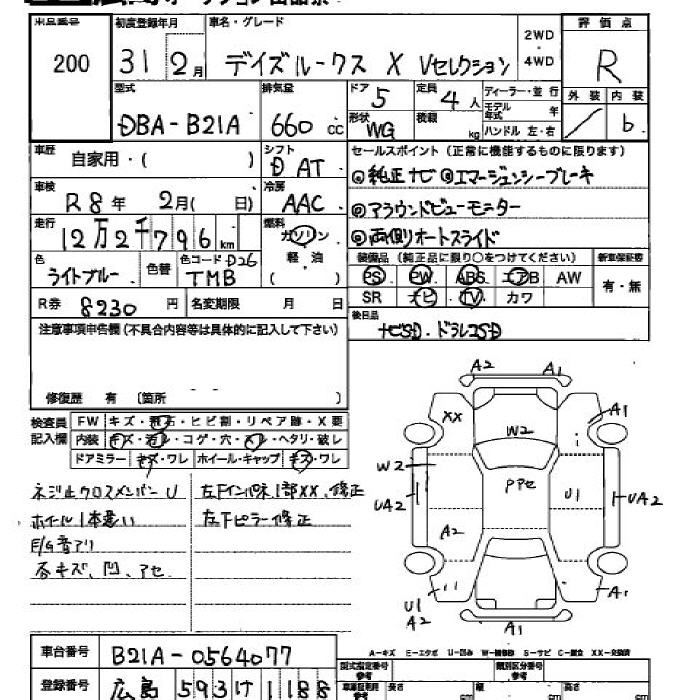 出品番号 200
初度登録年月 31 2月
車名・グレード デイズルークス X Vセレクション
2WD・4WD
評価点 R
外装 内装 b
型式 DBA-B21A
排気量 660cc
ドア 5
定員 4人
ディーラー・並行
モデル年式 年
ハンドル 左・右
形状 WG
積載 kg
車歴 自家用・( )
シフト D AT
セールスポイント(正常に機能するものに限ります)
◎純正ナビ ◎エマージェンシーブレーキ
◎アラウンドビューモニター
◎両側オートスライド
車検 R8年 2月( 日)
冷房 AAC
走行 12万2千796km
燃料 ガソリン
軽・油
( )
色 ライトブルー
色替
色コード D26 TMB
装備品(純正品に限り○をつけてください) 新車保証書
PS PW ABS エアB AW 有・無
SR ナビ TV カワ
R券 8230円
名変期限 月 日
後日品
ナビSD.ドラレコSD
注意事項申告欄(不具合内容等は具体的に記入して下さい)
修復歴 有 〔箇所 〕
検査員記入欄
FW キズ・飛石・ヒビ割・リペア跡・X要
内装 キズ・汚レ・コゲ・穴・スレ・ヘタリ・破レ
ドアミラー キズ・ワレ ホイール・キャップ キズ・ワレ
ネジ止クロスメンバーU
ホイール1本違い
E/G音アリ
各キズ、凹、アセ.
左Fインパネ1部XX、修正
左Fピラー修正
A2 A1
XX A1
W2
W2
PPセ
U1
UA2 UA2
A2
U1 A2
A1
A1
A-キズ E-エクボ U-凹み W-補修跡 S-サビ C-腐食 XX-交換済
車台番号 B21A-0564077
型式指定番号 参考
類別区分番号 参考
登録番号 広島 593け1188
長さ cm
幅 cm
高さ cm